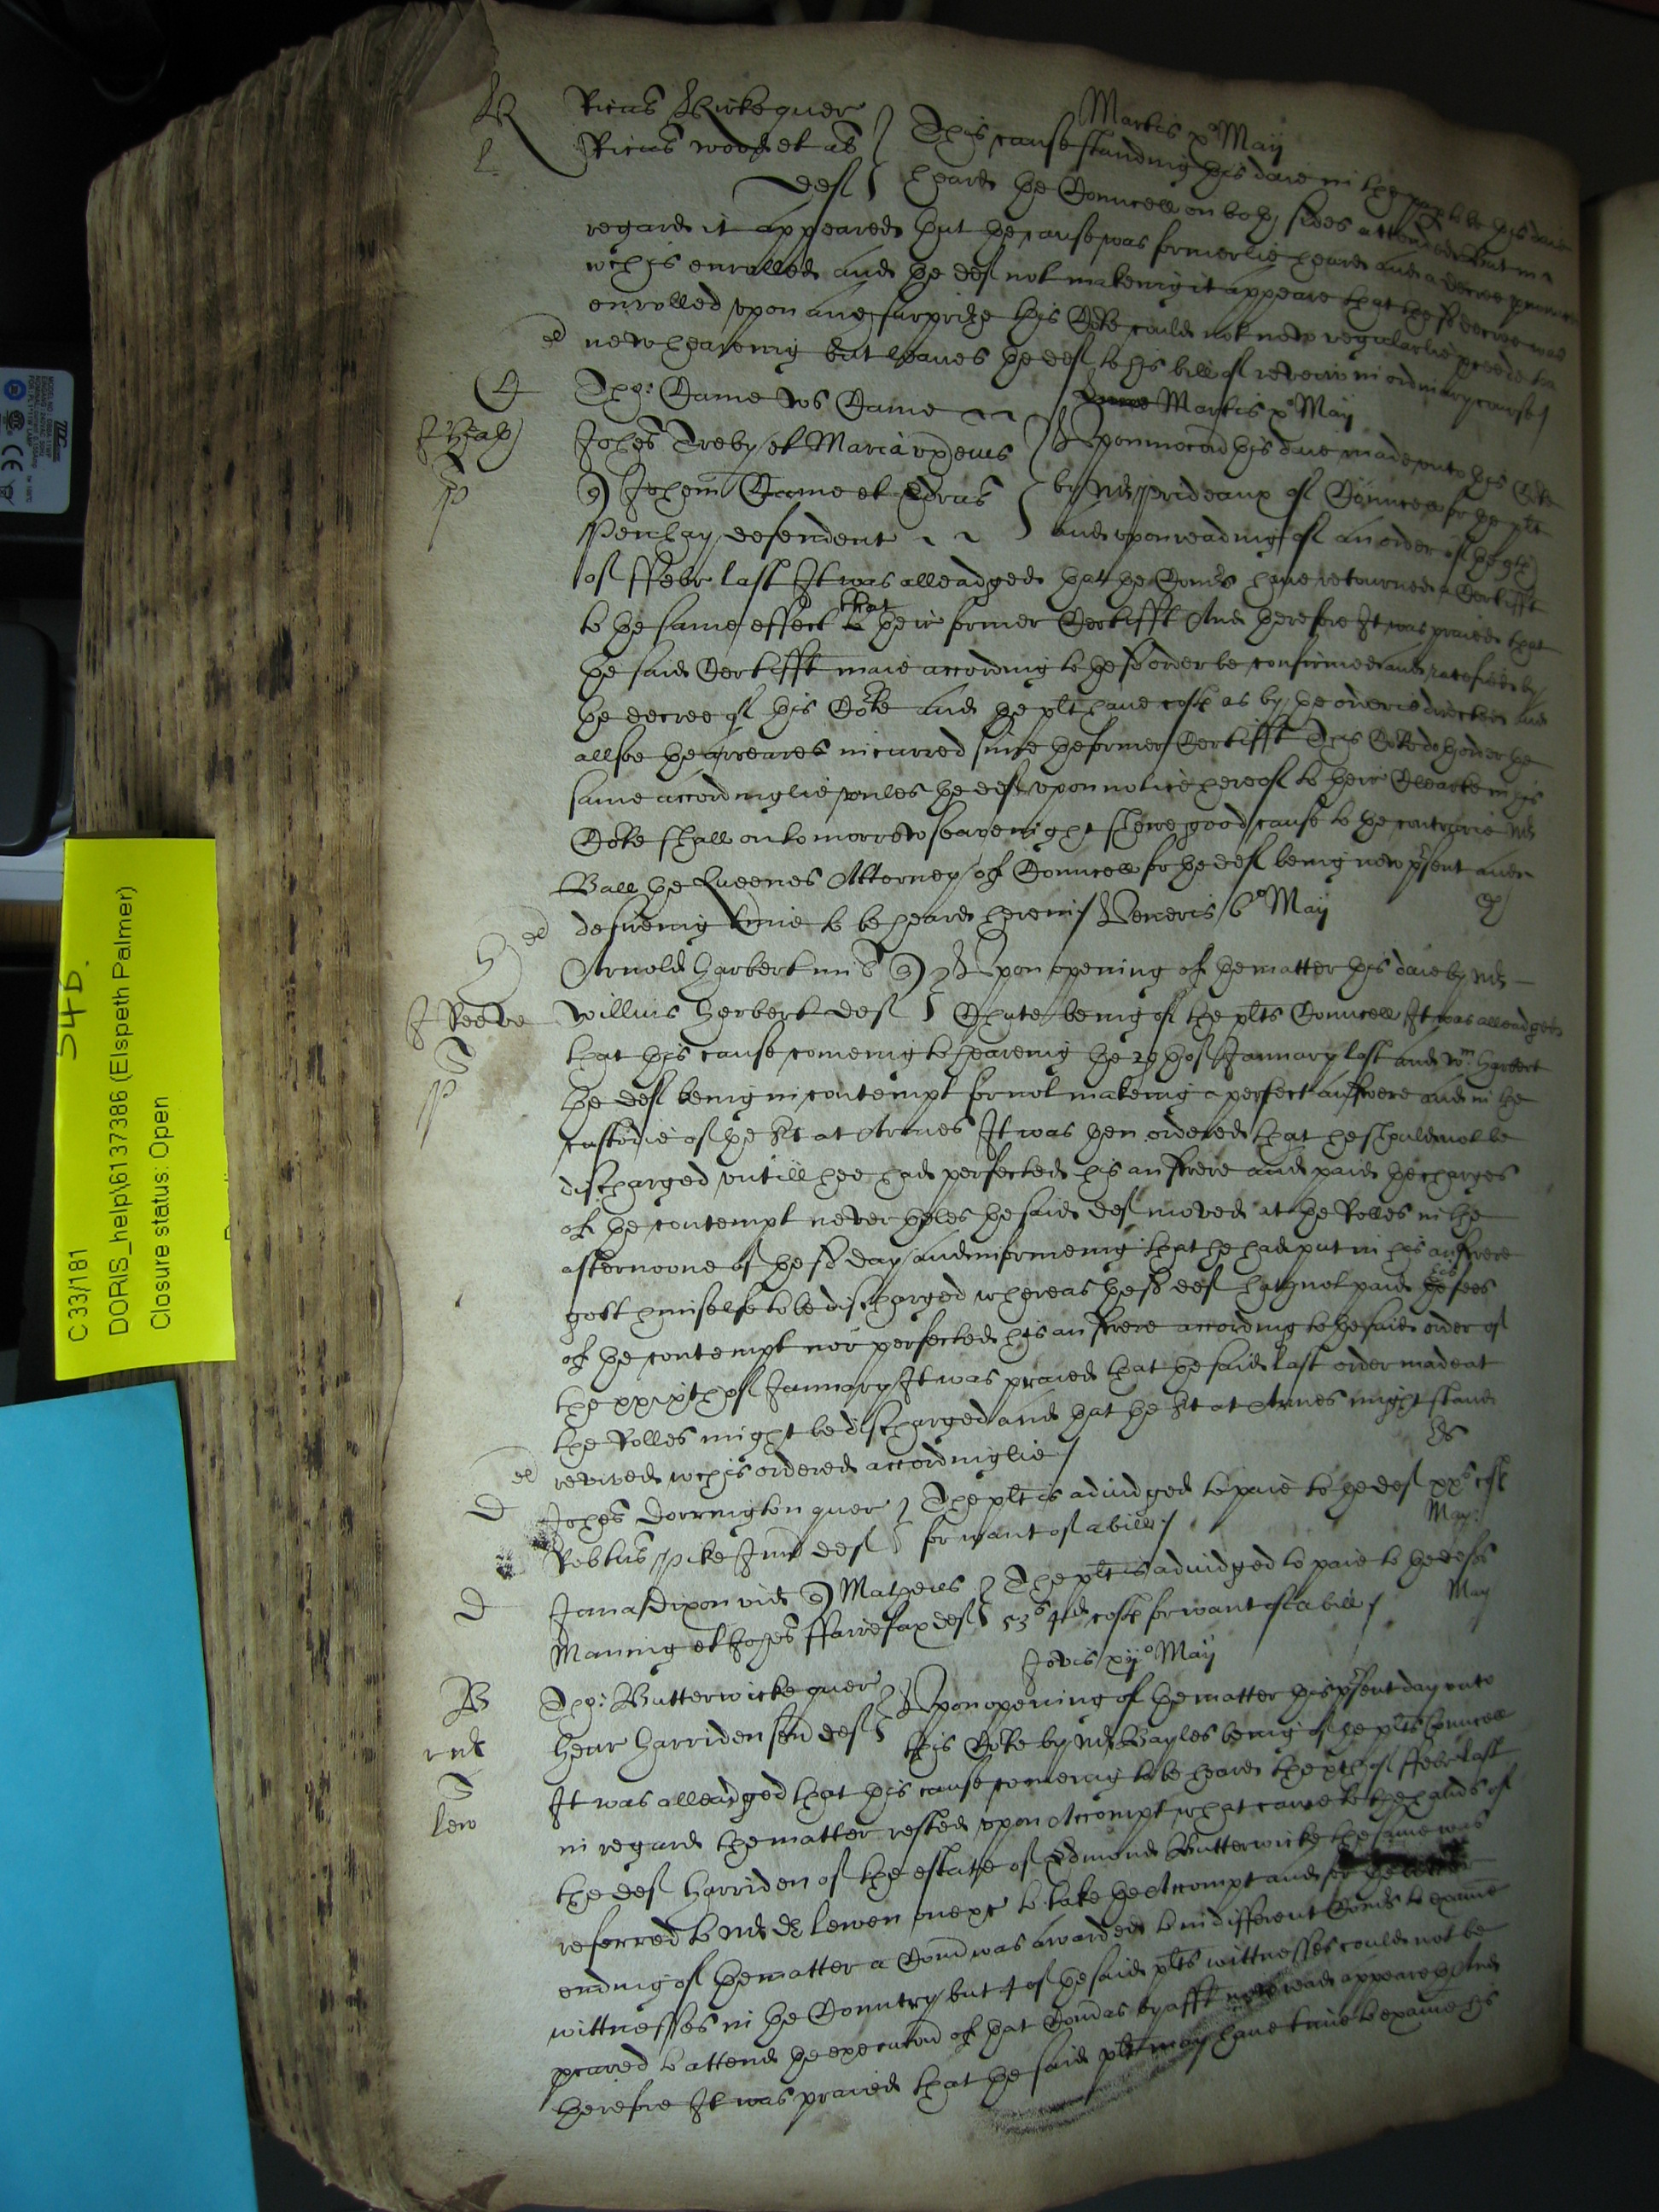 Martis x° May
Ricus Kirke quer
Ricus wood et al This cause standing this daie in the pap to be this daie
def heard the Councell on both sides attended But in
regard it appeared that the cause was formerlie heard and a decree
wch is enrolled and the def not makeing it appeare that the sd decree was
enrolled upon anie surprize this Cote could not now regularlie proceede to a
new heareing but leaves the def to his bill of reveiw in ordinary course
Tho: Came vs Came Martis x° May
J Heath
Johes Treby et Maria ux eius Upon mocon this daie made unto this Cote
Johem Came et Edrus by Mr Prideaux of Councell for the plt
Penhay defendent and upon reading of an order of the 9th
of ffebr last It was alleadged that the Comrs have retourned a Certifft
to the same effect that their former Certifft And therefore It was praied that
the said Certifft maie according to the sd order be confirmed and ratefied by
the decree of this Cote and the plt have costs as by the order is directed and
allsoe the arreares incurred since the former Certifft This Cote doth order the
same accordinglie unles the def upon notice hereof to their Clearke in this
Cote shall on to morrow seavenight shewe good cause to the contrarie Mr
Ball the Queenes Attorney of Councell for the def being now psent and
desireing time to be heard herein Veneris 6° May
Arnold Harbert mil Upon opening of the matter this daie by Mr
J Reeve
Willms Herbert def Chute being of the plts Councell It was alleadged
that this cause comeing to heareing the 29th of January last and Wm Harbert
the def being in contempt for not makeing a perfect answere and in the
custodie of the St at Armes It was then ordered that he should not be
discharged untill hee had perfected his answere and paid the charges
of the contempt never theles the said def moved at the Rolles in the
afternoone of the sd day and informeing that he had put in his answere
gott himselfe to be discharged whereas the sd def hath not paid his fees
of the contempt nor perfected his answere according to the said order of
the xxixth of January It was praied that the said last order made at
the Rolles might be discharged and that the St at Armes might stand
revived wch is ordered accordinglie
D
Johes Dorrington quer The plt is adiudged to paie to the def xxs costs
Robtus Pike Jun def for want of a bill May:
D
Jonas Dixon vid Matheus The plt is adiudged to paie to the defts
Manning et Johes ffairefax def 53s 4d costs for want of a bill May
Jovis xij° May
B
Tho: Butterwicke quer Upon opening of the matter this psent day unto
Henr Harriden sen def this Cote by Mr Bayles being of the plts Councell
It was alleadged that this cause comeing to be heard the xth of ffebr last
in regard the matter rested upon Accompt what came to the hands of
the def Harriden of the estate of Edmond Butterwicke the same was
lew
referred to Mr Dr Lewen one &c to take the Accompt and for the better
ending of the matter a Comd was awarded to indifferent Comrs to examine
wittnesses in the Countrey but 4 of the said plts wittnesses could not be
pcured to attend the execucon of that Comd as by afft now read appeareth And
therefore It was praied that the said plt may have time to examine his
C 33/181
DORIS_help\6137386 (Elspeth Palmer)
Closure status: Open